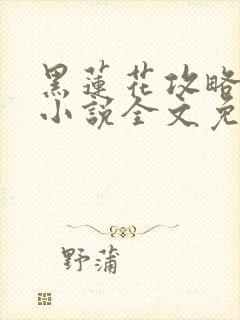 黑蓮花攻略
小說全文免
野蒲